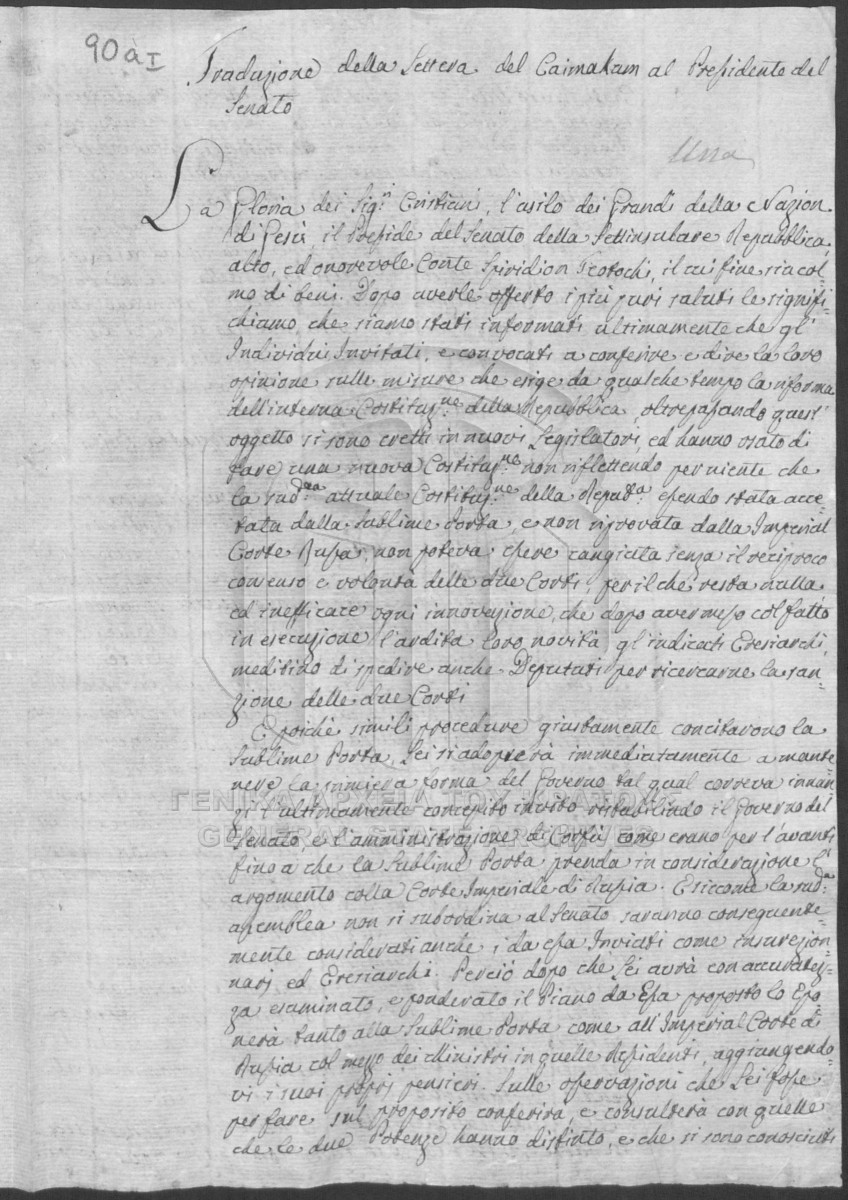 90 a I
Traduzione della Lettera del Caimakam al Presidente del
Senato
Una
La Gloria dei Sig.ri Cristiani, l'asilo dei Grandi della Nazion
di Gesù, il Preside del Senato della Settinsulare Repubblica,
alto, ed onorevole Conte Spiridion Teotochi, il cui fine sia col-
mo di beni. Dopo averle offerto i più puri saluti le signifi-
chiamo, che siamo stati informati ultimamente che gl'
Individui Invitati, e convocati a conferire e dire la loro
opinione sulle misure che esige da qualche tempo la riforma
dell'interna Costituz.ne della Repubblica, oltrepassando quest'
oggetto si sono eretti in nuovi Legislatori, ed hanno osato di
fare una nuova Costituz.ne non riflettendo per niente che
la sud.a attuale Costituz.ne della Repub.a essendo stata acce-
tata dalla Sublime Porta, e non riprovata dalla Imperial
Corte Russa, non poteva essere cangiata senza il reciproco
consenso e volontà delle due Corti, per il che resta nulla,
ed inefficace ogni innovazione, che dopo aver messo col fatto
in esecuzione l'ardita loro novità gl'indicati Eresiarchi,
meditino di spedire anche Deputati per ricercarne la san-
zione delle due Corti
E poichè simili procedure giustamente concitarono la
Sublime Porta, Lei si adoprerà immediatamente a mante-
nere la primiera forma del Governo tal qual correva innan-
zi l'ultimamente concepito invito ristabilindo il Governo del
Senato e l'amministrazione di Corfù come erano per l'avanti
fino a che la Sublime Porta prenda in considerazione l'
argomento colla Corte Imperiale di Russia. E siccome la sud.a
assemblea non si subordina al Senato saranno conseguente-
mente considerati anche i da essa Inviati come insurezion-
narj ed Eresiarchi. Perciò dopo che Lei avrà con accuratez-
za esaminato, e ponderato il Piano da Essa proposto lo Espo-
nerà tanto alla Sublime Porta come all'Imperial Corte di
Russia col mezo dei Ministri in quelle Residenti, aggiungendo-
vi i suoi proprj pensieri. Sulle osservazioni che Lei fosse
per fare sul proposito conferirà, e consulterà con quelle
che le due Potenze hanno distinto, e che si sono conosciuti
ΓΕΝΙΚΑ ΑΡΧΕΙΑ ΤΟΥ ΚΡΑΤΟΥΣ
GENERAL STATE ARCHIVES